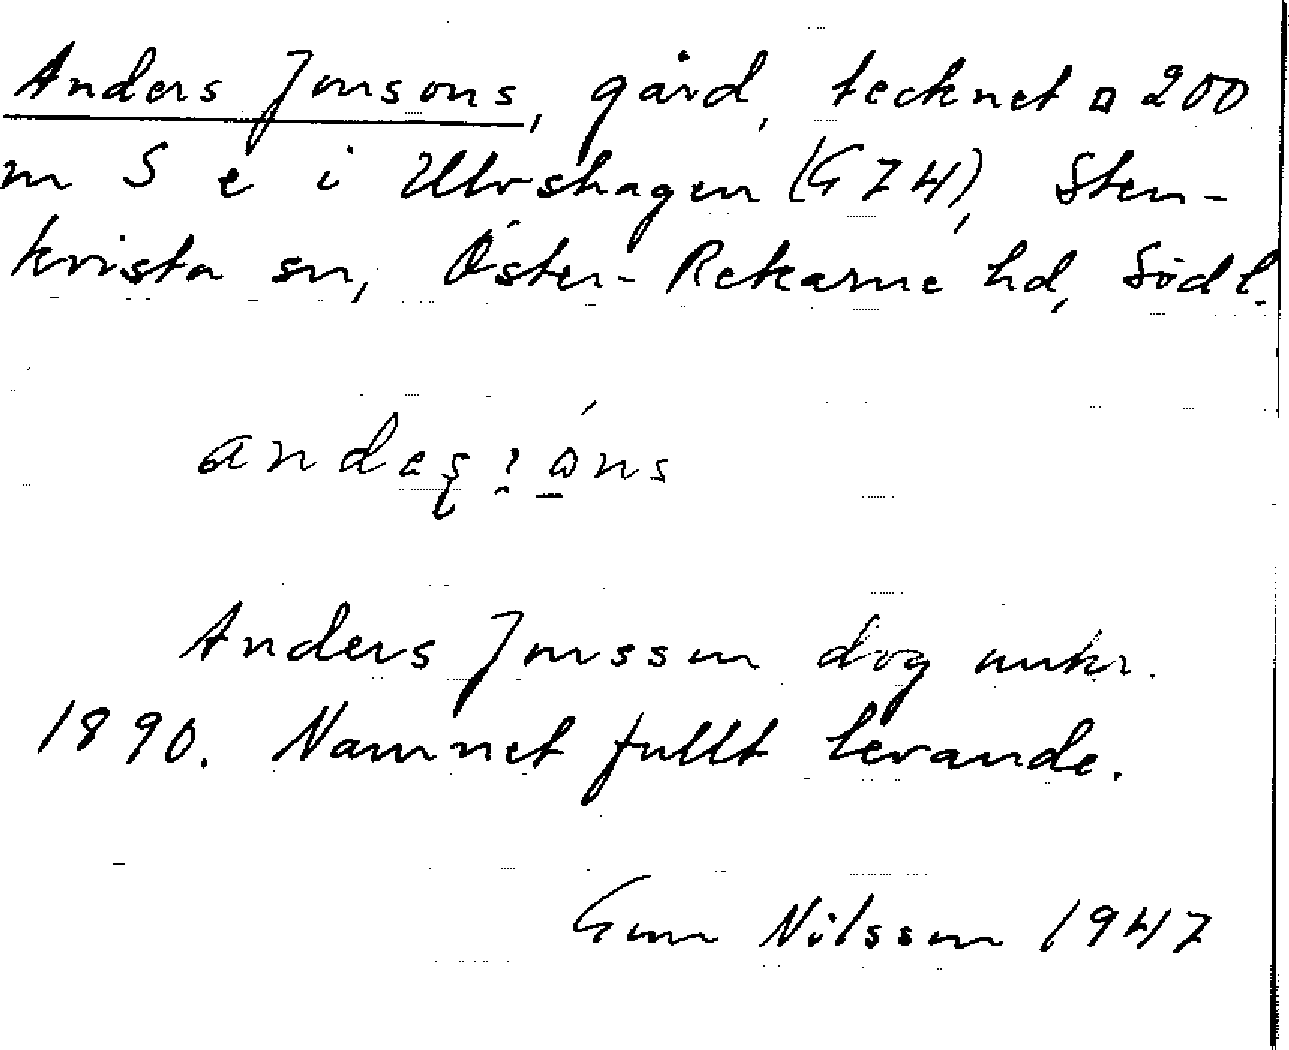 Anders Jonsons, gård, tecknet □ 200
m S e i Ulvshagen (G74), Sten-
kvista sn, Öster-Rekarne hd, Södl.
Anders Jonsson dog omkr.
1890. Namnet fullt levande.
Gun Nilsson 1947